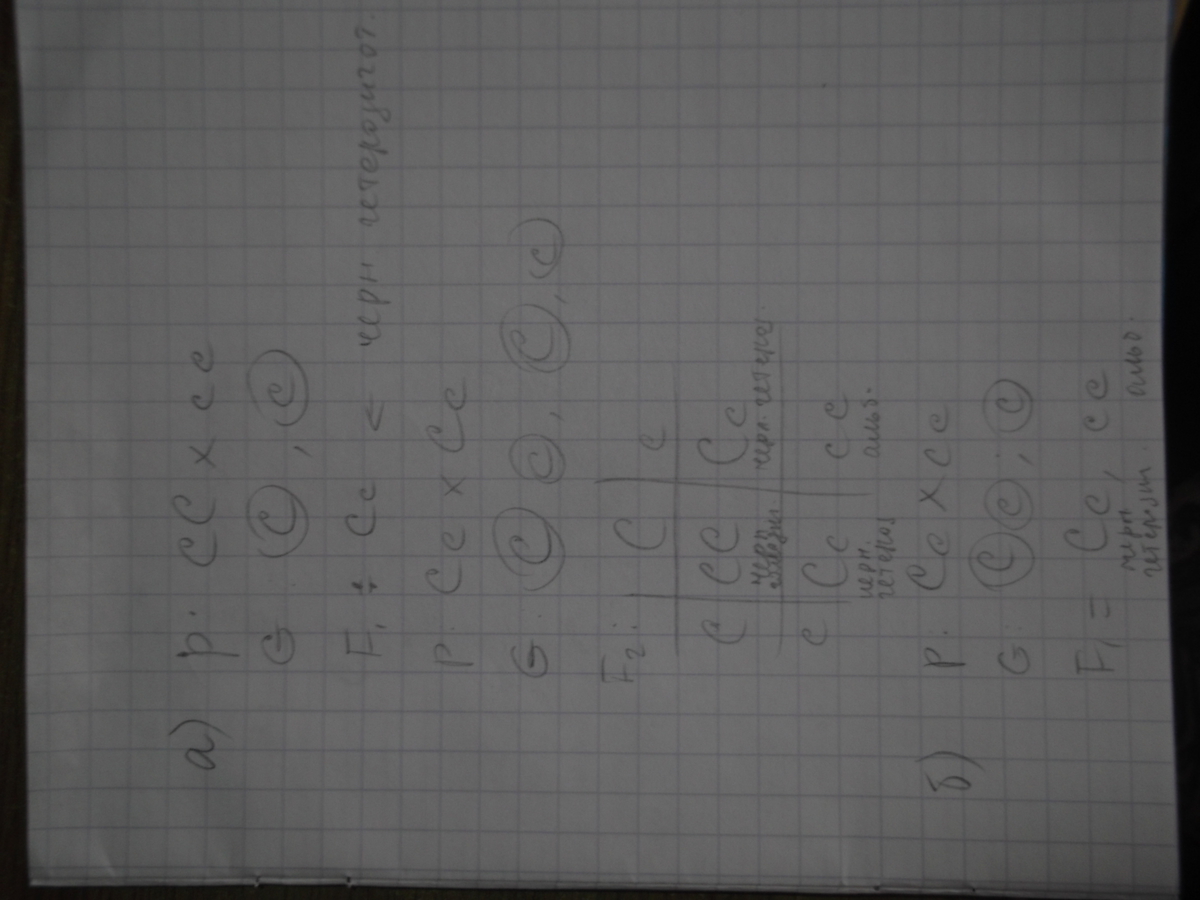 а) P: CC x cc
G: C, c
F₁: Cc < черн гетерозигот.
P: Cc x Cc
G: C c, C, c
F₂: C c
C CC Cc
черн. гетероз
c Cc cc
черн. гетероз альб.
б) P: Cc x cc
G: C c; c
F₁ = Cc, cc
черн гетерозиг. альб.